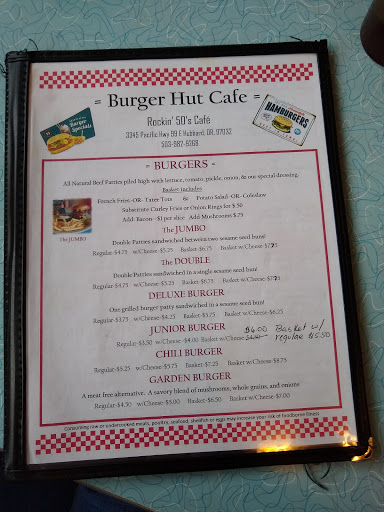 = Burger Hut Cafe =
Burger
Specials
HAMBURGERS
Rockin' 50's Café
3345 Pacific Hwy 99 E Hubbard, OR. 97032
503-982-8268
- BURGERS -
All Natural Beef Patties piled high with lettuce, tomato, pickle, onion, & our special dressing.
Basket includes
French Fries -OR- Tater Tots & Potato Salad -OR- Coleslaw
Substitute Curley Fries or Onion Rings for $.50
Add: Bacon--$1 per slice Add Mushrooms $.75
The JUMBO
The JUMBO
Double Patties sandwiched between two sesame seed buns!
Regular-$4.75 w/Cheese-$5.25 Basket-$6.75 Basket w/Cheese-$7.25
The DOUBLE
Double Patties sandwiched in a single sesame seed bun!
Regular-$4.75 w/Cheese-$5.25 Basket-$6.75 Basket w/Cheese-$7.25
DELUXE BURGER
One grilled burger patty sandwiched in a sesame seed bun!
Regular-$3.75 w/Cheese-$4.25 Basket-$5.75 Basket w/Cheese-$6.25
JUNIOR BURGER $6.00 Basket w/
Regular-$3.50 w/Cheese-$4.00 Basket w/Cheese regular $5.50
CHILI BURGER
Regular-$5.25 w/Cheese-$5.75 Basket-$7.25 Basket w/Cheese-$8.75
GARDEN BURGER
A meat free alternative. A savory blend of mushrooms, whole grains, and onions
Regular-$4.50 w/Cheese-$5.00 Basket-$6.50 Basket w/Cheese-$7.00
Consuming raw or undercooked meats, poultry, seafood, shellfish or eggs may increase your risk of foodborne illness